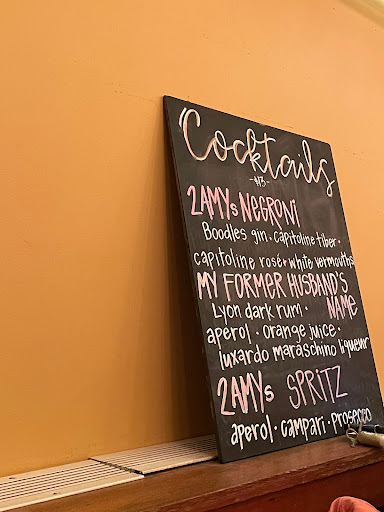 Cocktails
-$13-
2AMYs NEGRONI
Boodles gin · capitoline tiber ·
capitoline rosé + white vermouths
MY FORMER HUSBAND'S
NAME
Lyon dark rum ·
aperol · orange juice ·
luxardo maraschino liqueur
2AMYs SPRITZ
aperol · campari · prosecco